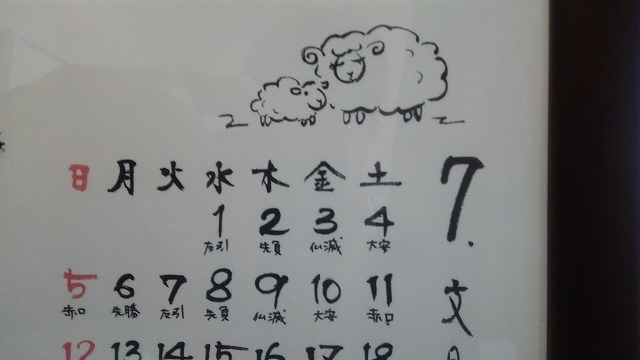 7.
文月
日 月 火 水 木 金 土
1 2 3 4
友引 先負 仏滅 大安
5 6 7 8 9 10 11
赤口 先勝 友引 先負 仏滅 大安 赤口
12 13 14 15 16 17 18